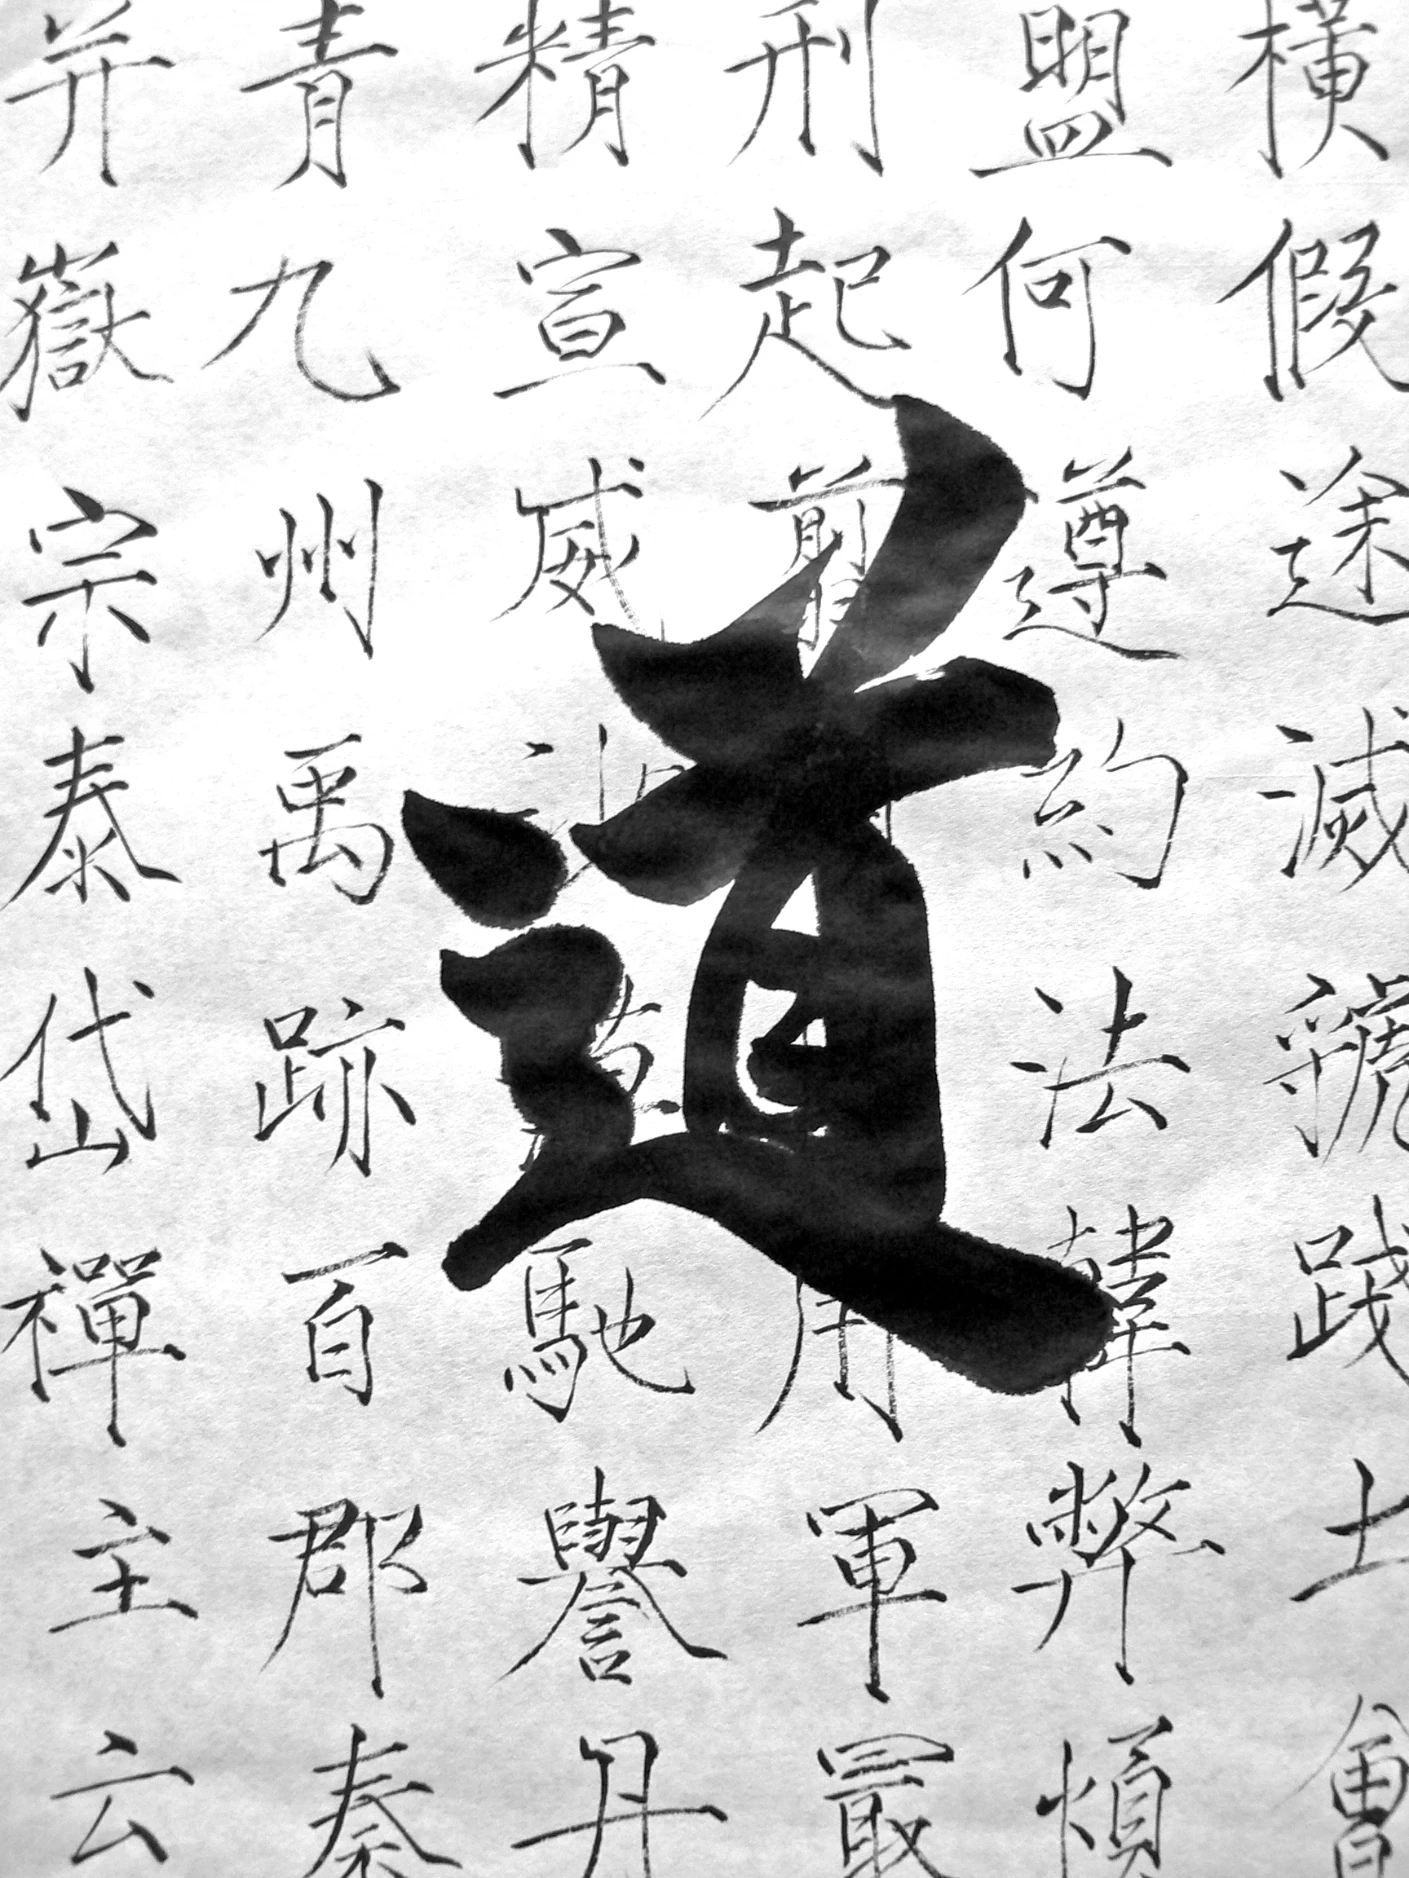 橫假途滅虢踐土會
盟何遵約法韓弊煩
刑起翦用軍最
精宣威馳譽丹
青九州禹跡百郡秦
并嶽宗泰岱禪主云
道